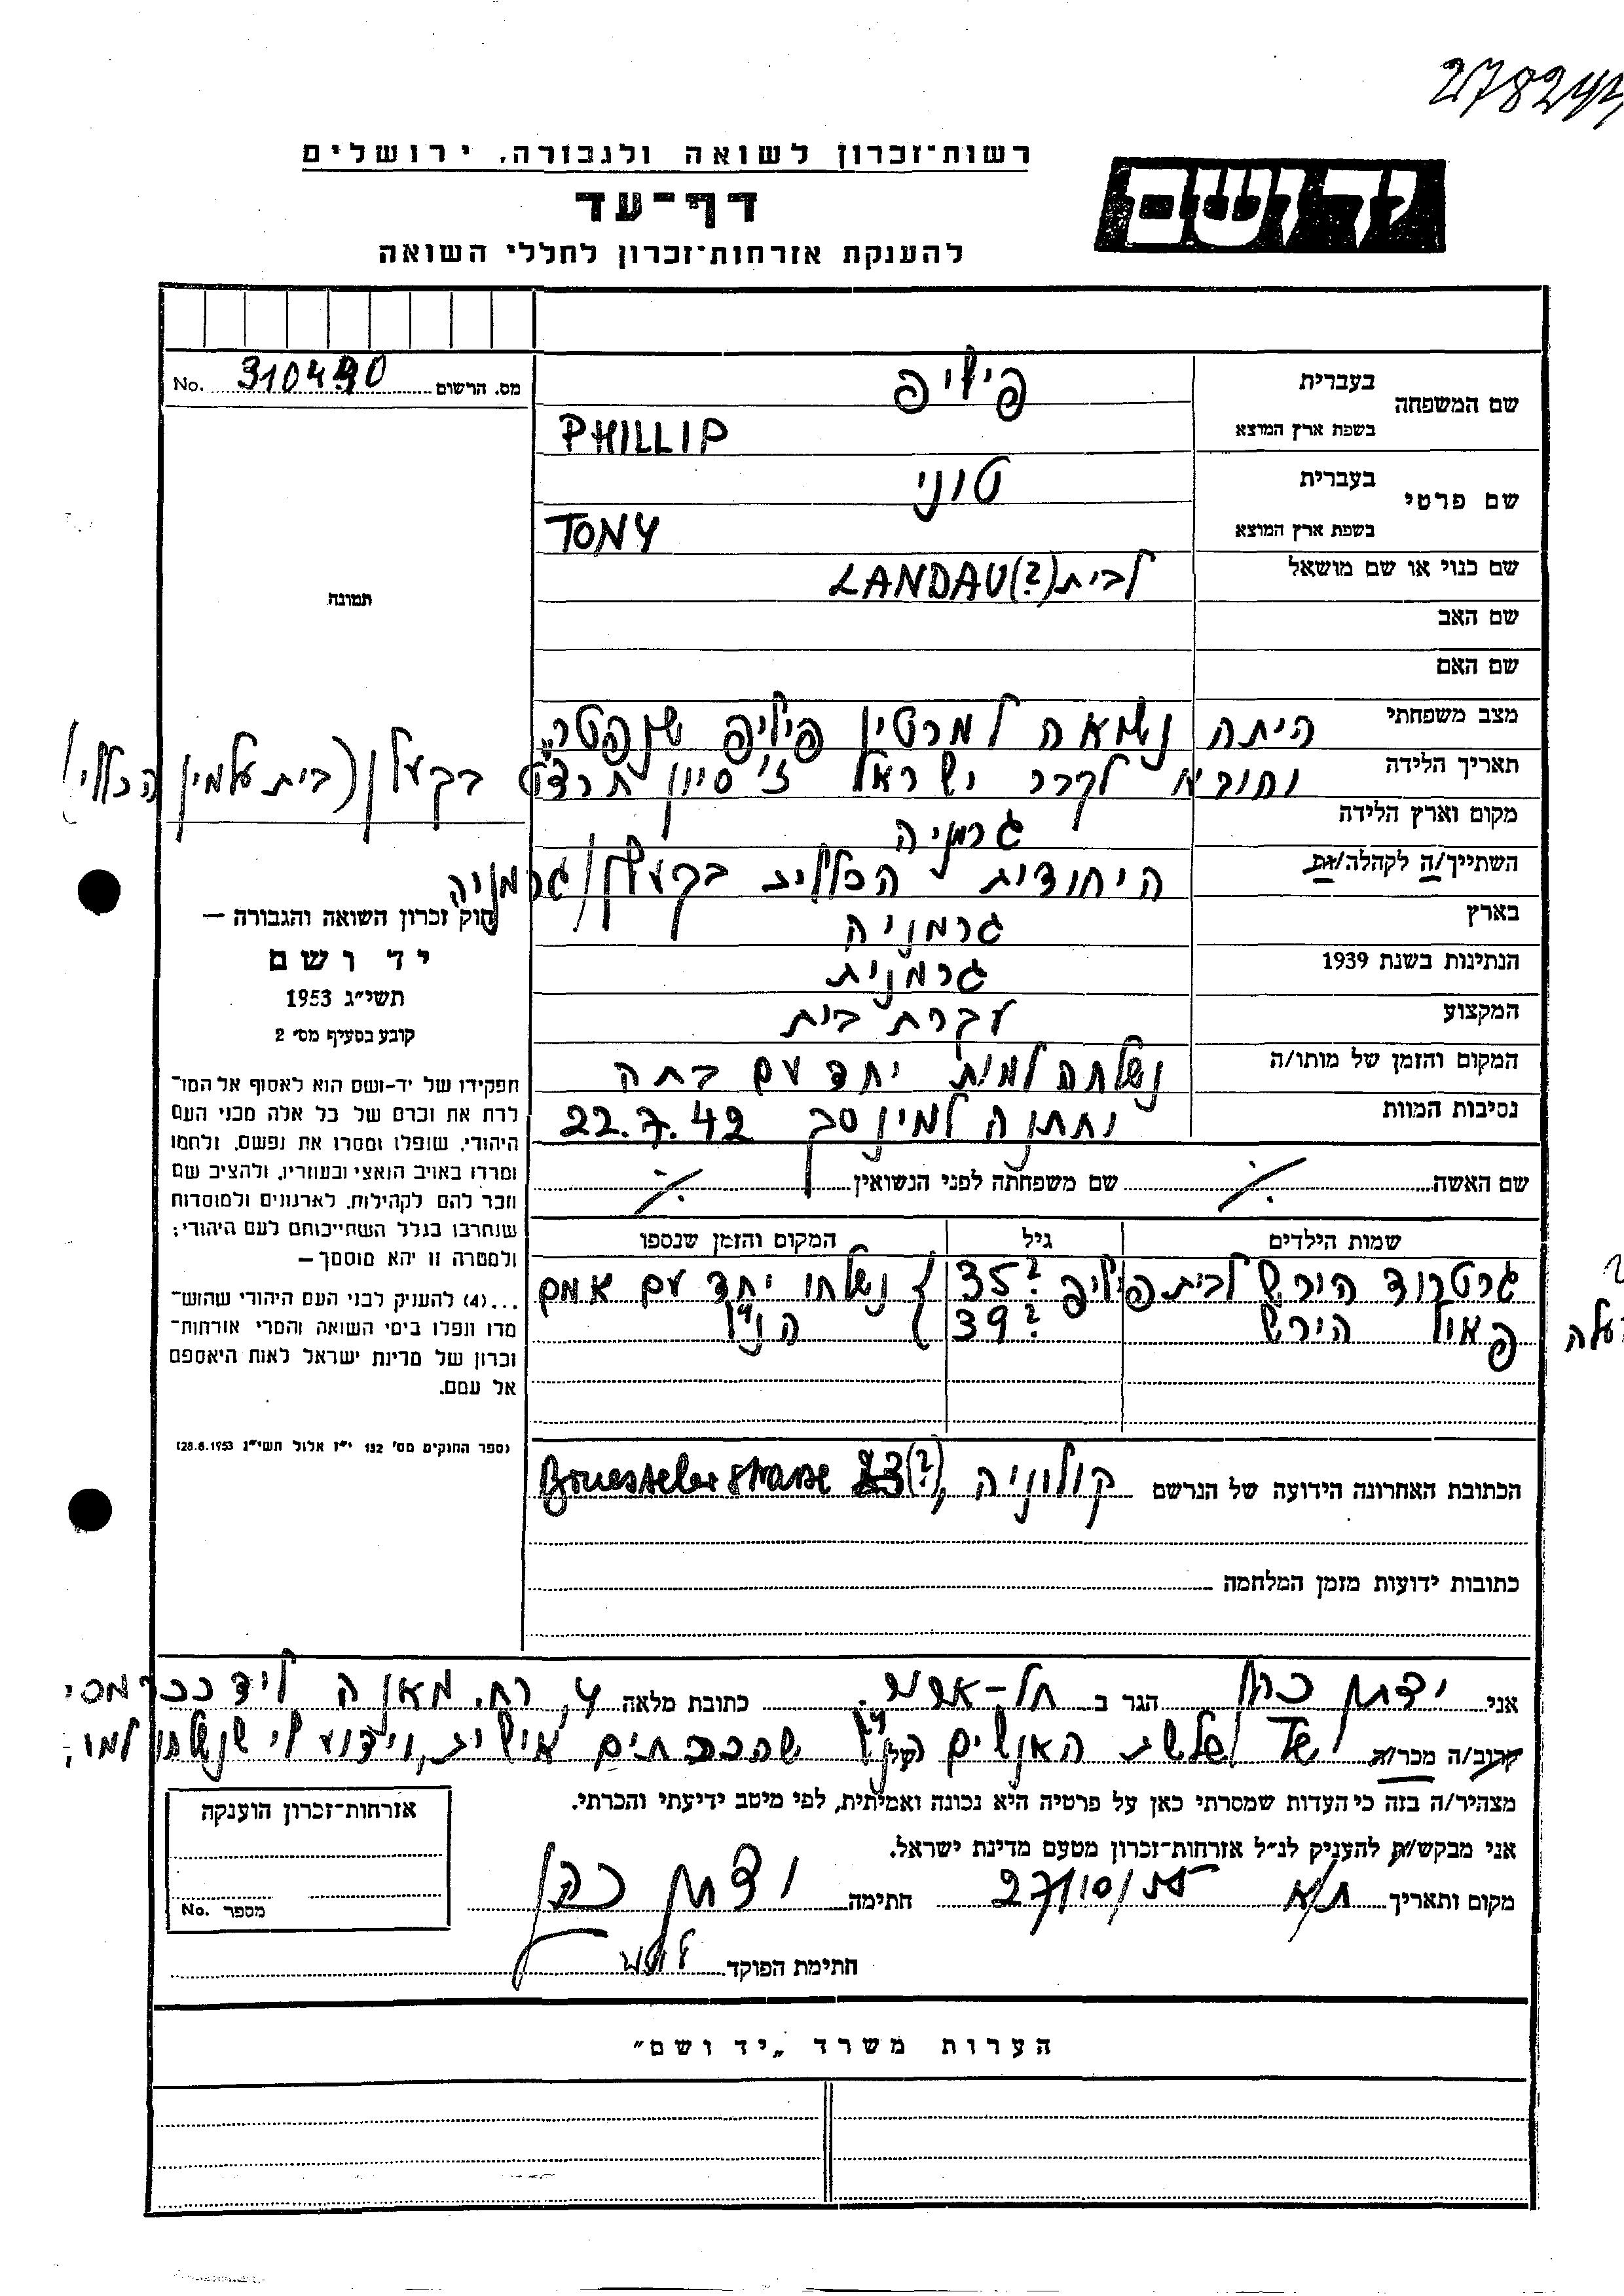 278244
רשות־זכרון לשואה ולגבורה, ירושלים
יד ושם
דף־עד
להענקת אזרחות־זכרון לחללי השואה
מס. הרשום 310490 No.
שם המשפחה
בעברית פיליפ
בשפת ארץ המוצא PHILLIP
שם פרטי
בעברית טוני
בשפת ארץ המוצא TONY
שם כנוי או שם מושאל לבית (?)LANDAU
תמונה
שם האב
שם האם
מצב משפחתי היתה נשואה למרטין פיליפ שנפטר
תאריך הלידה והובא לקבר ישראל ז' סיון תרצ"ט בקעלן (בית עלמין הכללי)
מקום וארץ הלידה גרמניה
השתייך/ה לקהלה/ות היהודית הכללית בקעלן/גרמניה
בארץ גרמניה
הנתינות בשנת 1939 גרמנית
המקצוע עקרת בית
המקום והזמן של מותו/ה נשלחה למות יחד עם בתה
נסיבות המוות וחתנה למינסק 22.7.42
שם האשה ./. שם משפחתה לפני הנשואין ./.
שמות הילדים גיל המקום והזמן שנספו
גרטרוד הירש לבית פיליפ 35? נשלחו יחד עם אמם
פאול הירש 39? הנ"ל
הכתובת האחרונה הידועה של הנרשם קולוניה, Bruesseler Strasse 23(?)
כתובות ידועות מזמן המלחמה
חוק זכרון השואה והגבורה —
יד ושם
תשי״ג 1953
קובע בסעיף מס׳ 2
תפקידו של יד־ושם הוא לאסוף אל המו־
לדת את זכרם של כל אלה מבני העם
היהודי, שנפלו ומסרו את נפשם, ולחמו
ומרדו באויב הנאצי ובעוזריו, ולהציב שם
וזכר להם לקהילות, לארגונים ולמוסדות
שנחרבו בגלל השתייכותם לעם היהודי;
ולמטרה זו יהא מוסמך—
...(4) להעניק לבני העם היהודי שהוש־
מדו ונפלו בימי השואה והמרי אזרחות־
זכרון של מדינת ישראל לאות היאספם
אל עמם.
(ספר החוקים מס׳ 132 י״ז אלול תשי״ג 28.8.1953)
אני כהן הגר ב תל-אביב כתובת מלאה 4, רח. מאנה ליד ככר מסי
קרוב/ה מכר/ה של שלשת האנשים הנ"ל שהכרתים אישית, וידוע לי שנשלחו למו
מצהיר/ה בזה כי העדות שמסרתי כאן על פרטיה היא נכונה ואמיתית, לפי מיטב ידיעתי והכרתי.
אני מבקש/ת להעניק לנ״ל אזרחות־זכרון מטעם מדינת ישראל.
מקום ותאריך ת"א 27/10/55 חתימה כהן
חתימת הפוקד
אזרחות־זכרון הוענקה
מספר No.
הערות משרד „יד ושם״